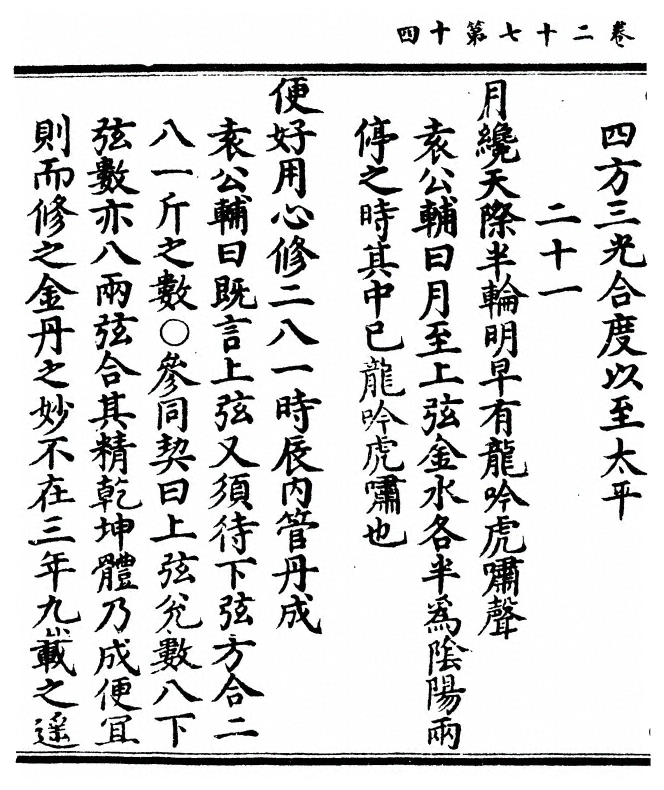 卷二十七第十四
四方三光合度以至太平
二十一
月纔天際半輪明早有龍吟虎嘯聲
袁公輔曰月至上弦金水各半爲陰陽兩
停之時其中已龍吟虎嘯也
便好用心修二八一時辰內管丹成
袁公輔曰既言上弦又須待下弦方合二
八一斤之數○參同契曰上弦兊數八下
弦數亦八兩弦合其精乾坤體乃成便冝
則而修之金丹之妙不在三年九載之遥